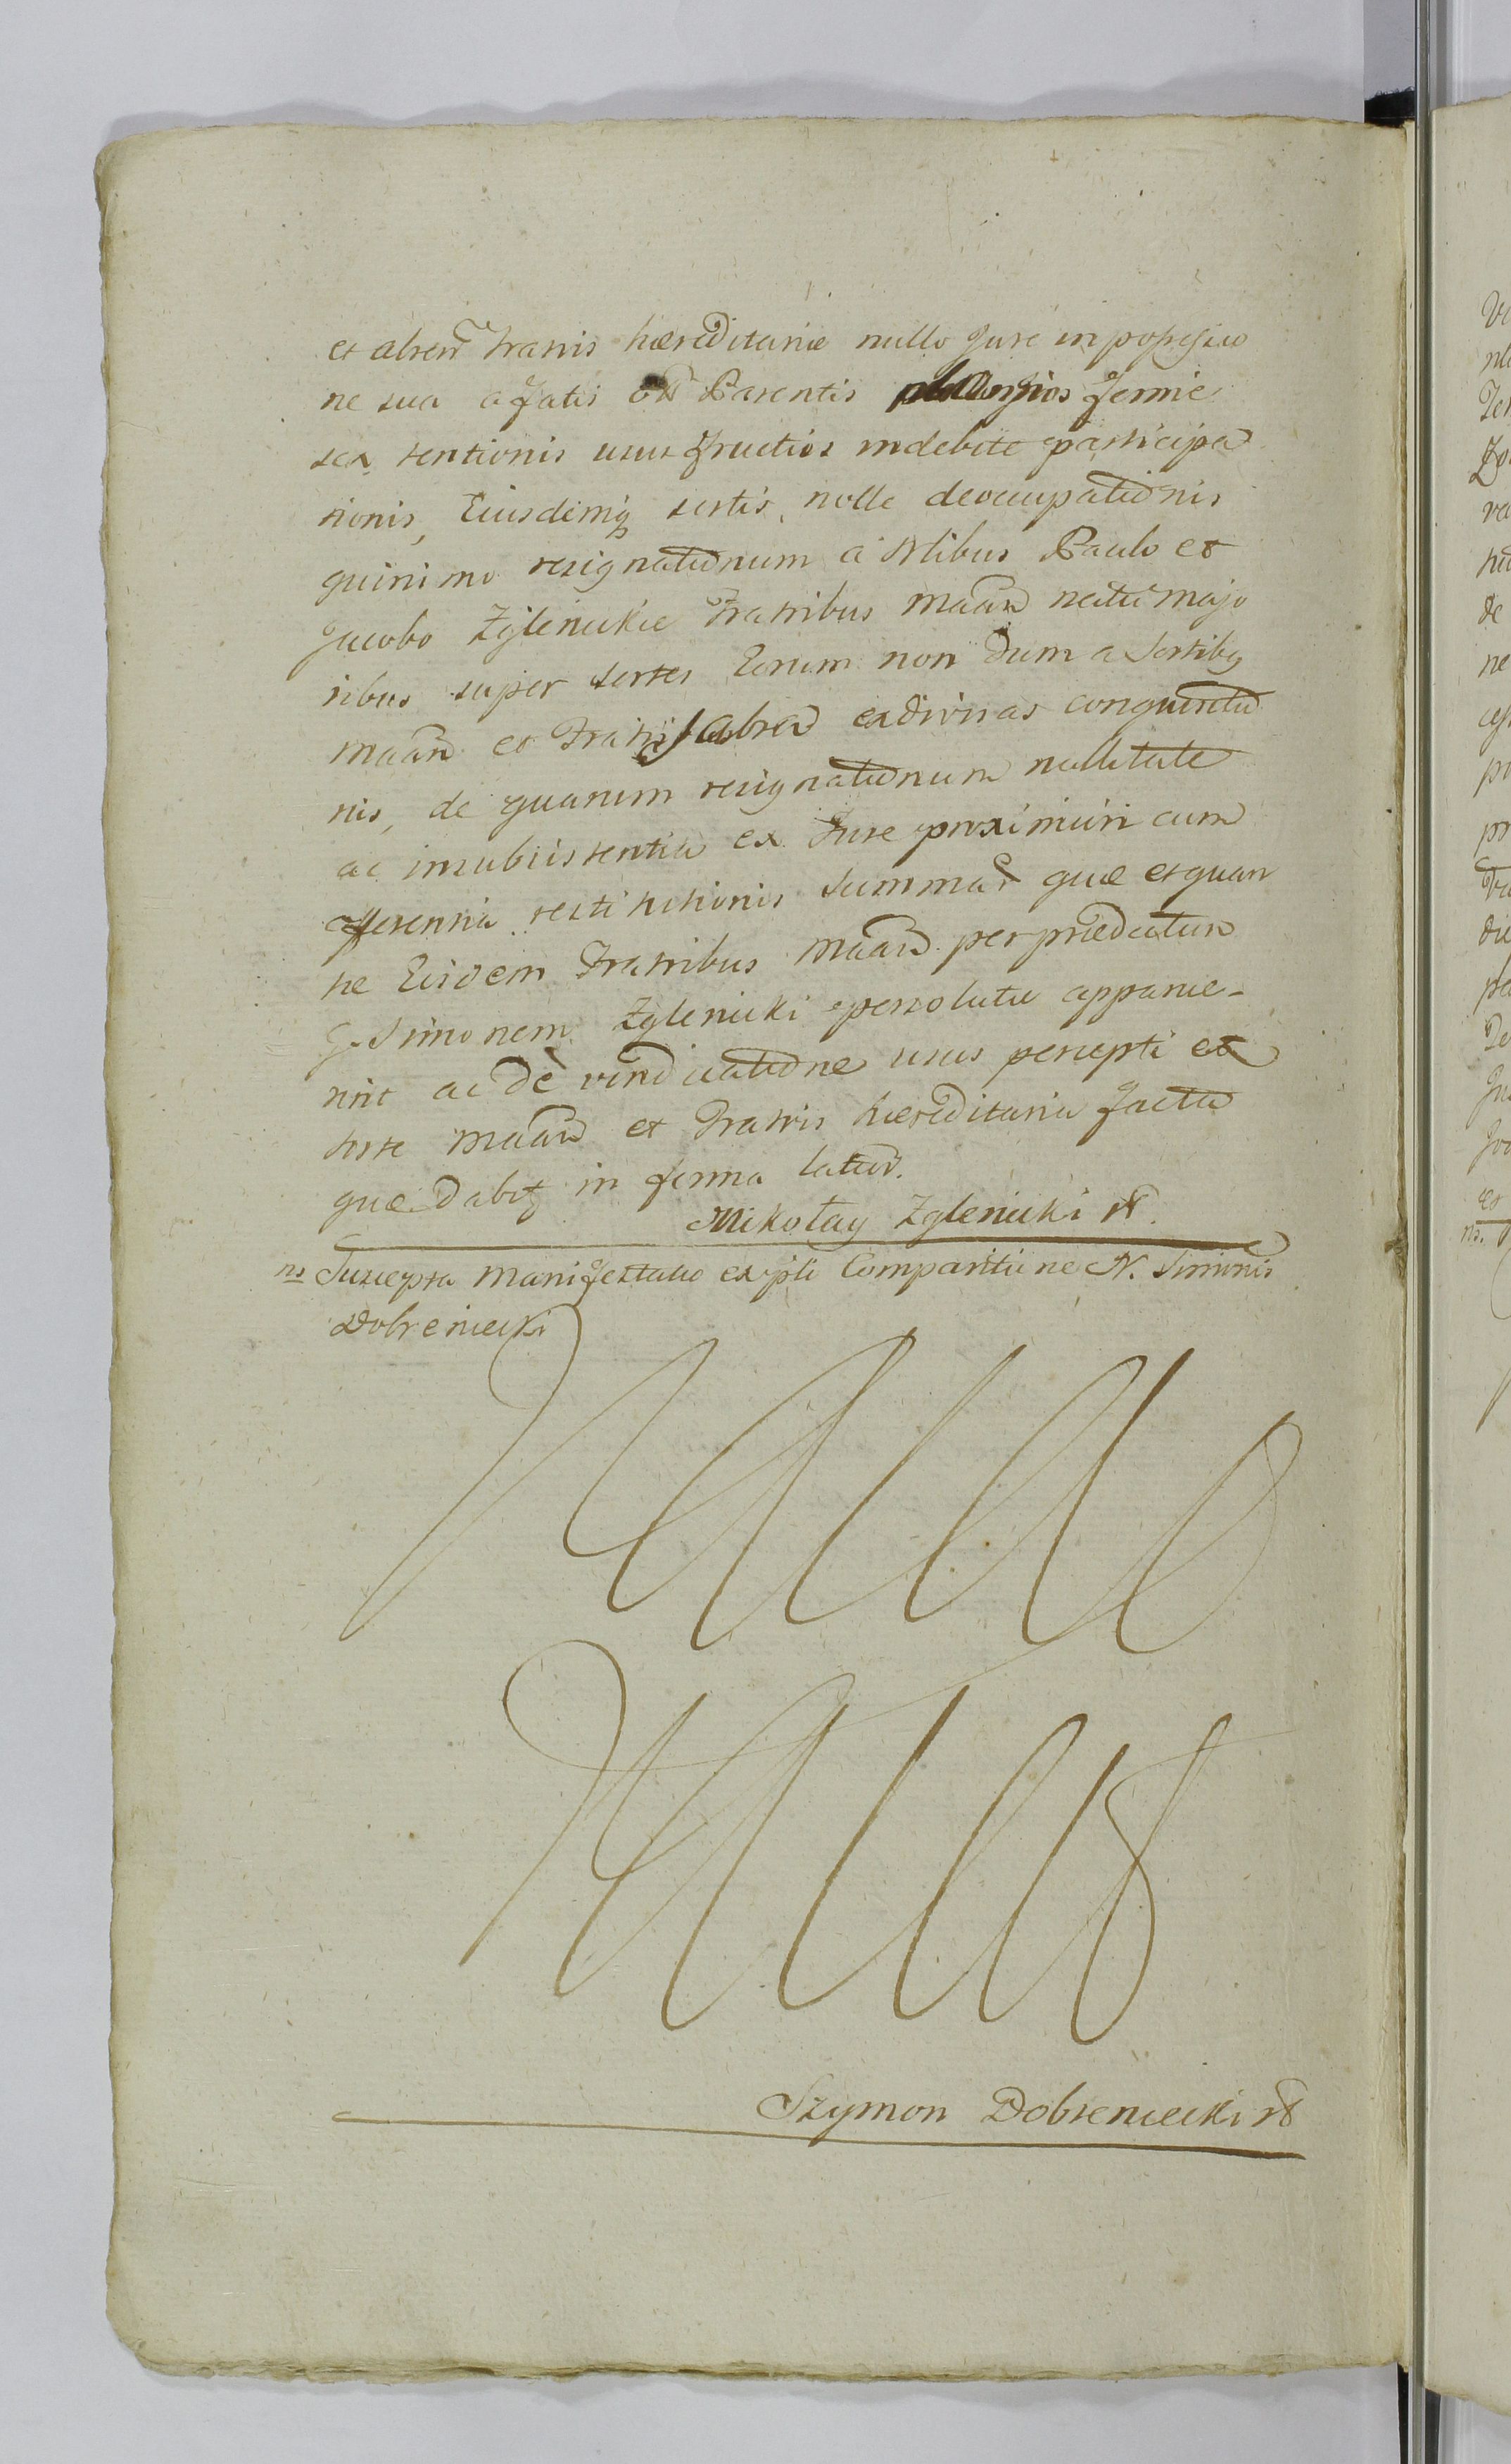 et absen fratris hæreditariæ nullo Jure in possessio
ne sua a fatis Parentis fermie
sex tentionis usus fructios indebite participa
tionis, Eiusdemq sortis, nolle deoccupationis
quinimo resignationum a Nlibus Paulo et
Jacobo Zglenickie Fratribus Maan natu majo
ribus super sortes Eorum non dum a Sortibq
Maan et Fratris absen exdivisas
nis, de quarum resignationum nullitate
ac insubsistentia ex Jure proximiori cum
offerentia restitutionis Summar quæ et quan
tæ Eisdem Fratribus Maan per prædictum
G. Simonem Zglenicki persoluta apparue-
rint ac de vindicatione usus percepti ex
sorte Maan et Fratris hæreditaria facta
quæ Dabit in forma latior.
Mikołay Zglenicki
ns Suscepta Manifestatio ex ipsi Comparitione N. Simonis
Dobreniecki
Szymon Dobreniecki